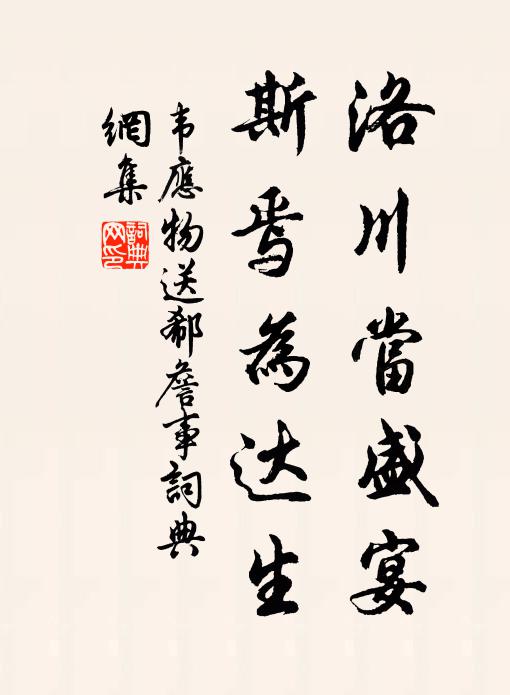 洛川當盛宴
斯焉為达生
韦應物送郗詹事詞典
網集
詞典
网印